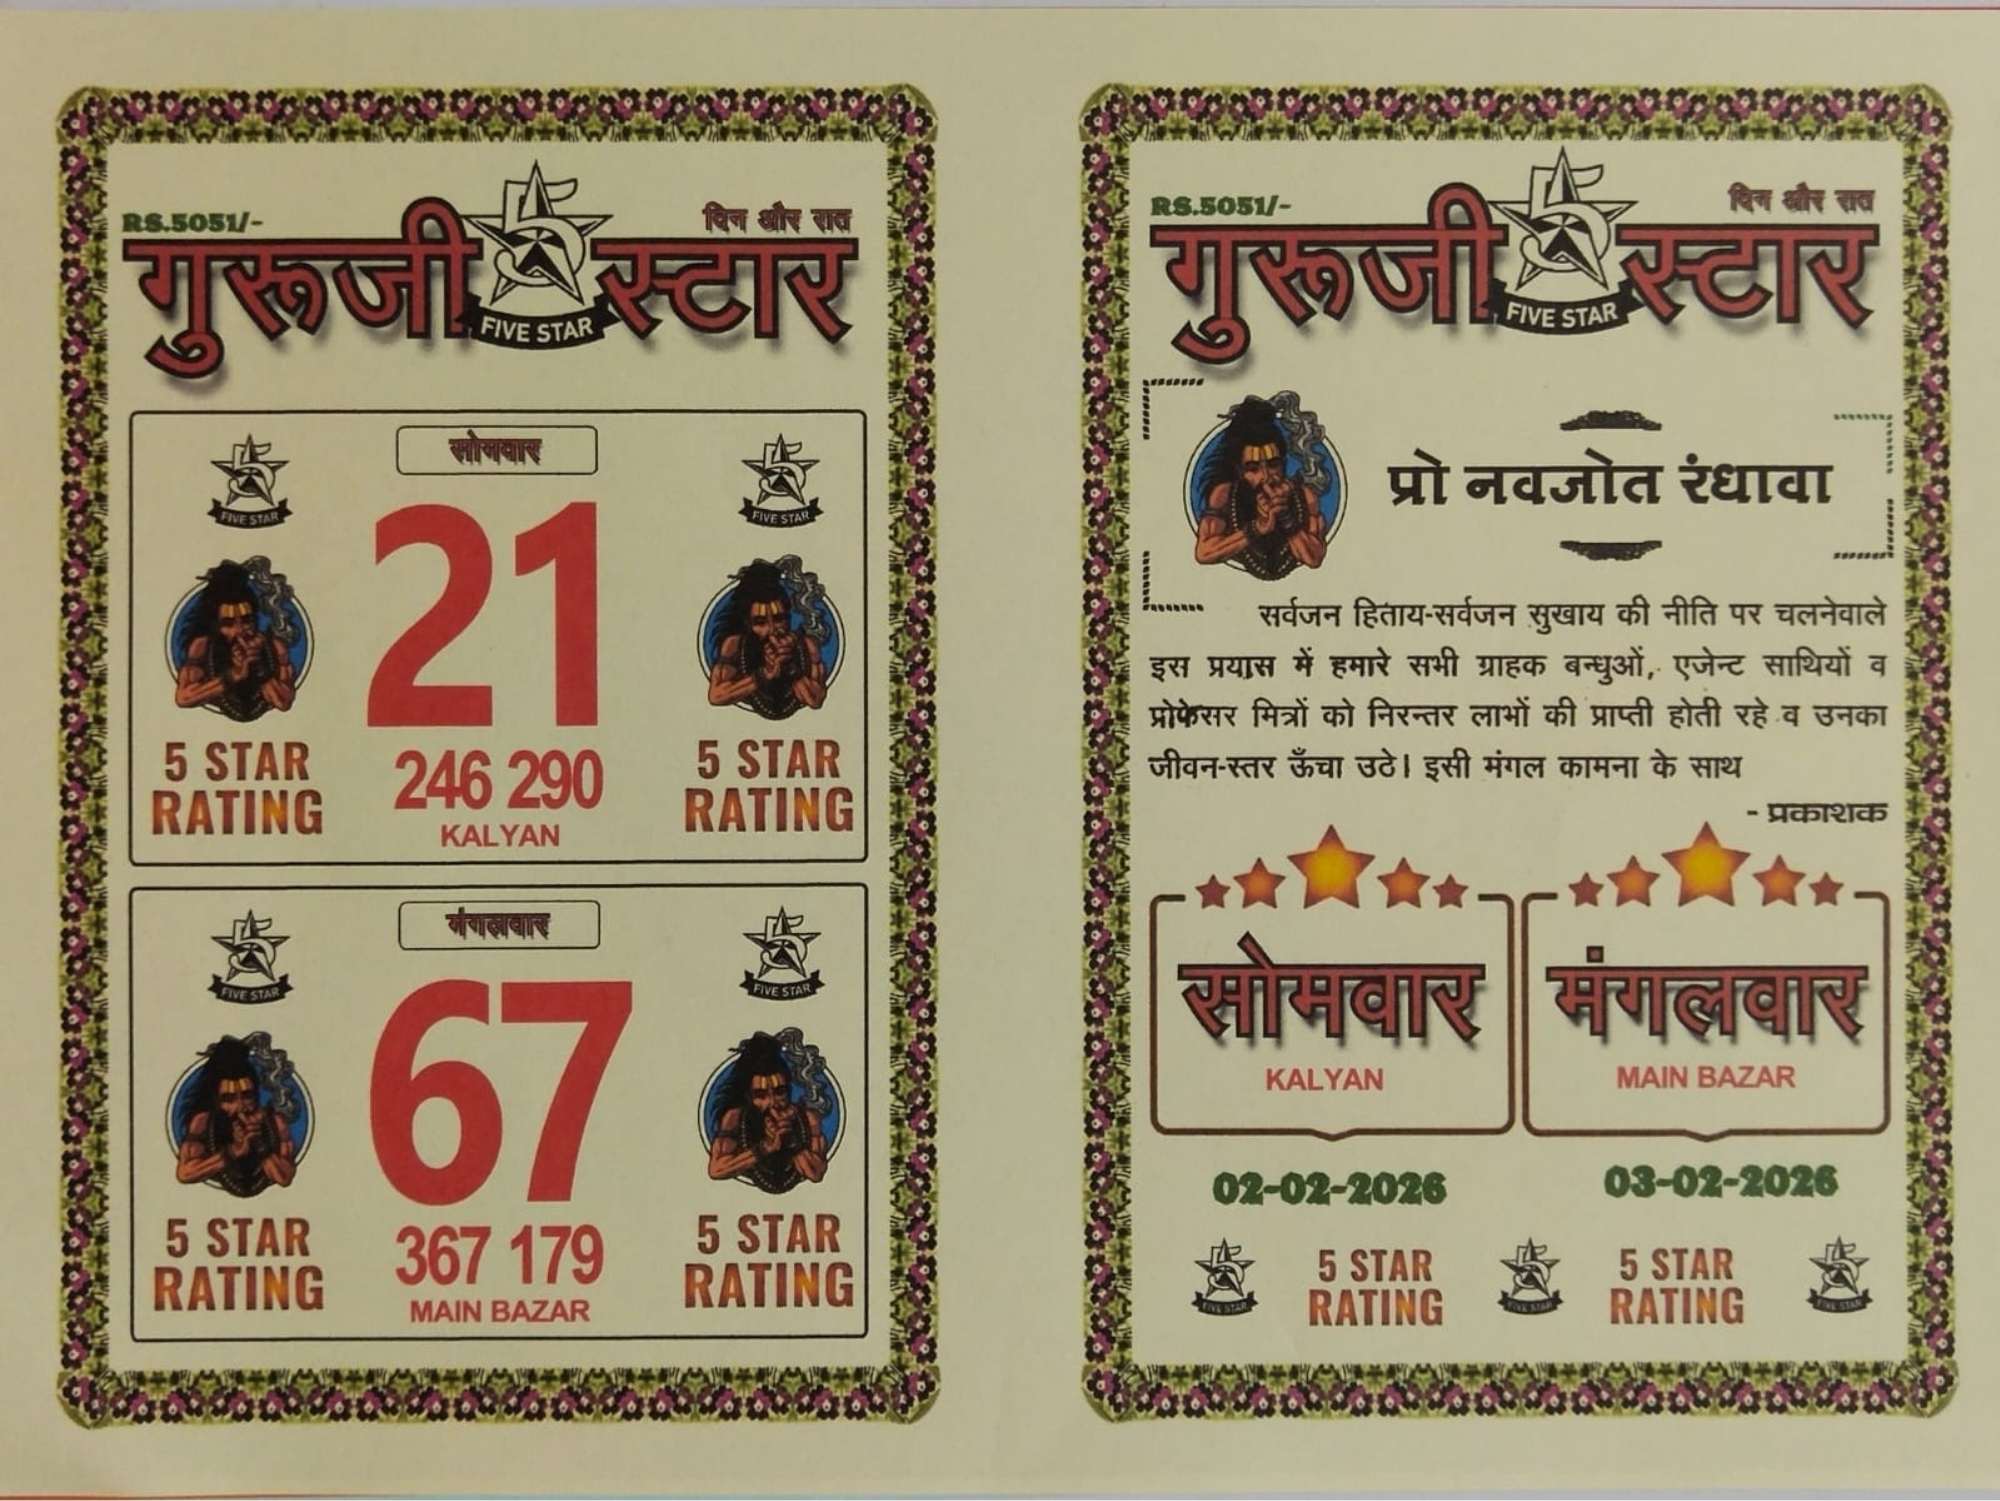 RS.5051/-
दिन और रात
गुरूजी 5 स्टार
FIVE STAR
सोमवार
5
FIVE STAR
5
FIVE STAR
21
5 STAR
RATING
246 290
KALYAN
5 STAR
RATING
मंगलवार
5
FIVE STAR
5
FIVE STAR
67
5 STAR
RATING
367 179
MAIN BAZAR
5 STAR
RATING
RS.5051/-
दिन और रात
गुरूजी 5 स्टार
FIVE STAR
प्रो नवजोत रंधावा
सर्वजन हिताय-सर्वजन सुखाय की नीति पर चलनेवाले
इस प्रयास में हमारे सभी ग्राहक बन्धुओं, एजेन्ट साथियों व
प्रोफेसर मित्रों को निरन्तर लाभों की प्राप्ती होती रहे व उनका
जीवन-स्तर ऊँचा उठे। इसी मंगल कामना के साथ
- प्रकाशक
सोमवार
KALYAN
मंगलवार
MAIN BAZAR
02-02-2026
03-02-2026
5
FIVE STAR
5 STAR
RATING
5
FIVE STAR
5 STAR
RATING
5
FIVE STAR